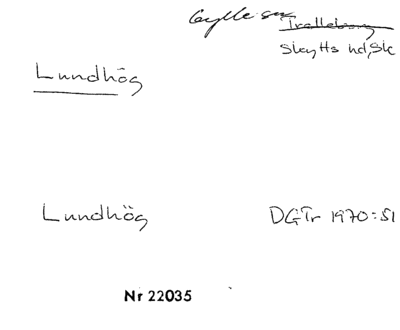 Gylle sn
Trelleborg
Skytts hd, Sk
Lundhög
Lundhög DGTr 1970:51
Nr 22035